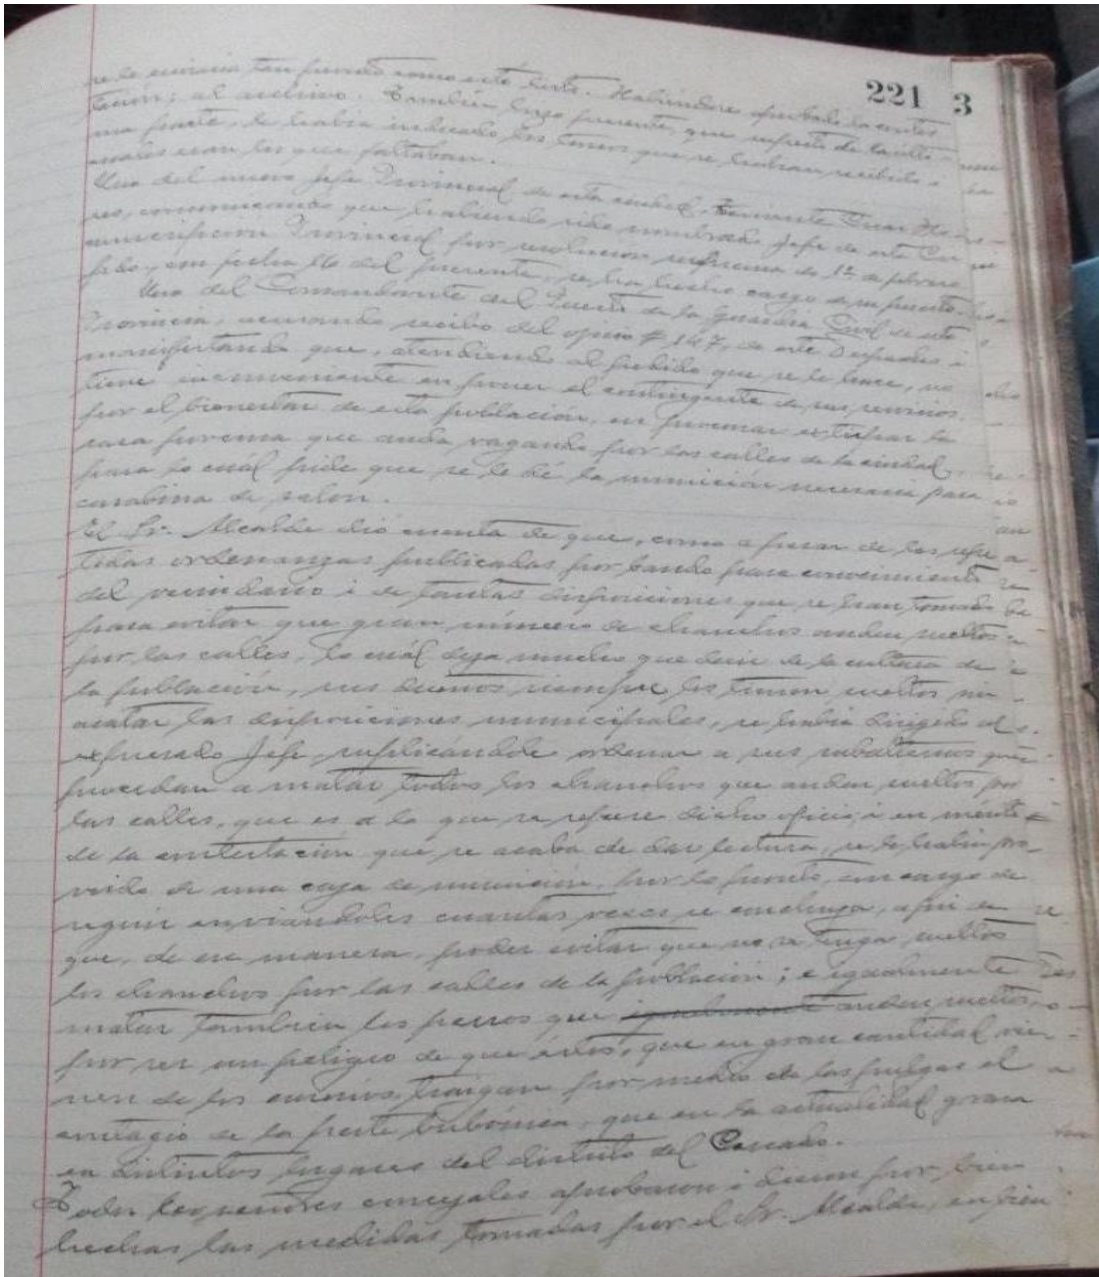 221 3
se le enviaria tan pronto como esté lista. Habiéndose aprobado la contes
tación; al archivo. También hago presente, que respecto de la últi-
ma parte, le había indicado los tomos que se habían recibido i
cuales eran los que faltaban.
Uno del nuevo Jefe Provincial de esta ciudad, Teniente
comunicando que habiendo sido nombrado Jefe de esta Cir
cunscripción Provincial por resolución suprema de 12 de febrero
con fecha del presente, se ha hecho cargo de su puesto.
Uno del Comandante del Puesto de la Guardia Civil de esta
Provincia, acusando recibo del oficio # 147, de este Despacho i
manifestando que, atendiendo al pedido que se le hace, no
tiene inconveniente en poner el contingente de sus servicios
por el bienestar de esta población, en procurar extirpar la
raza porcina que anda vagando por las calles de la ciudad,
para lo cuál pide que se le dé la munición necesaria para
carabina de salon.
El Sr. Alcalde dió cuenta de que, como a pesar de las repe
tidas ordenanzas publicadas por bando para conocimiento
del vecindario i de tantas disposiciones que se han tomado
para evitar que gran número de chanchos anden sueltos
por las calles, lo cuál deja mucho que decir de la cultura de
la población, sus dueños siempre los tienen sueltos sin
acatar las disposiciones municipales, se había dirigido al
expresado Jefe, suplicándole ordenar a sus subalternos que
procedan a matar todos los chanchos que anden sueltos por
las calles, que es a lo que se refiere dicho oficio; i en mérito
de la contestación que se acaba de dar lectura, se le había pro-
veido de una caja de munición, por lo pronto, con cargo de
seguir enviándoles cuantas veces se convenga, a fin de
que, de esa manera, poder evitar que no se tenga sueltos
los chanchos por las calles de la población; e igualmente
matar también los perros que igualmente anden sueltos,
por ser un peligro de que éstos, que en gran cantidad vie-
nen de los caseríos, traigan por medio de las pulgas el
contagio de la peste bubónica, que en la actualidad grasa
en distintos lugares del distrito del
Todos los señores concejales aprobaron i dieron por bien
hechas las medidas tomadas por el Sr. Alcalde, en bien